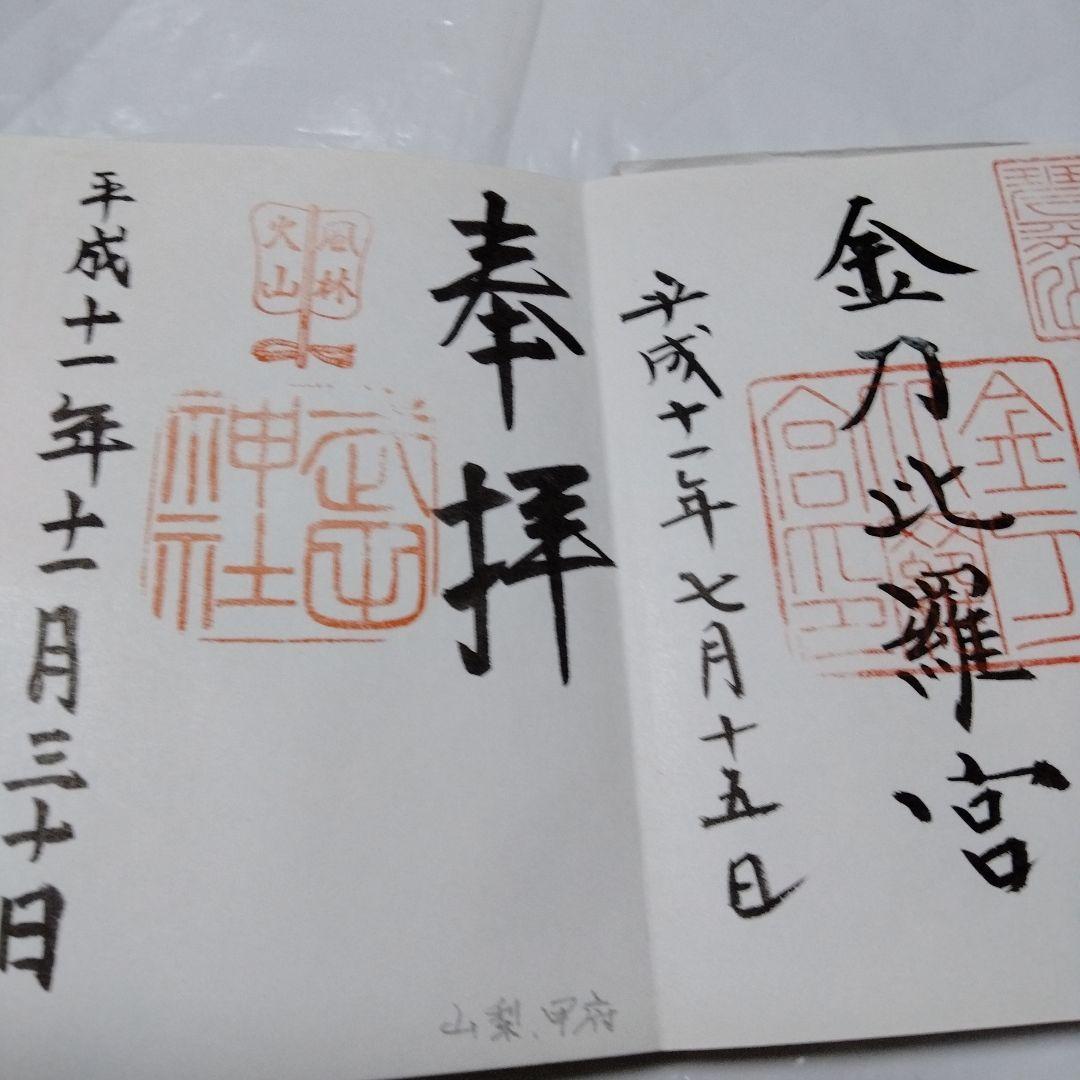 金刀比羅宮
平成十一年七月十五日
奉拝
風林
火山
武田
神社
平成十一年十一月三十日
山梨、甲府